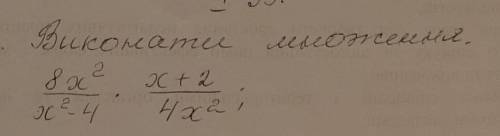 . Виконати множення.
8x²/x²-4 · x+2/4x² ;